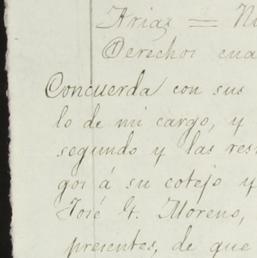 Arias = No
Derechos cua
Concuerda con sus
lo de mi cargo, y
segundo y las res
gos á su cotejo y
José Y. Moreno,
presentes, de que